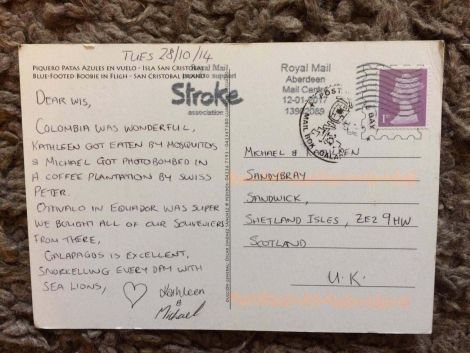 TUES 28/10/14
PIQUERO PATAS AZULES EN VUELO - ISLA SAN CRISTOBAL
BLUE-FOOTED BOOBIE IN FLIGH - SAN CRISTOBAL ISLAND
Royal Mail
to support
Stroke
association
Royal Mail
Aberdeen
Mail Centre
12-01-2017
1st
DEAR WIS,
COLOMBIA WAS WONDERFULL,
KATHLEEN GOT EATEN BY MOSQUITOS
& MICHAEL GOT PHOTOBOMBED IN
A COFFEE PLANTATION BY SWISS
PETER.
OTAVALO IN EQUADOR WAS SUPER
WE BOUGHT ALL OF OUR SOUVENIERS
FROM THERE,
GALAPAGOS IS EXCELLENT,
SNORKELLING EVERY DAY WITH
SEA LIONS,
Kathleen
&
Michael
MICHAEL & KATHLEEN
SANDYBRAY
SANDWICK,
SHETLAND ISLES, ZE2 9HW
SCOTLAND
U.K.